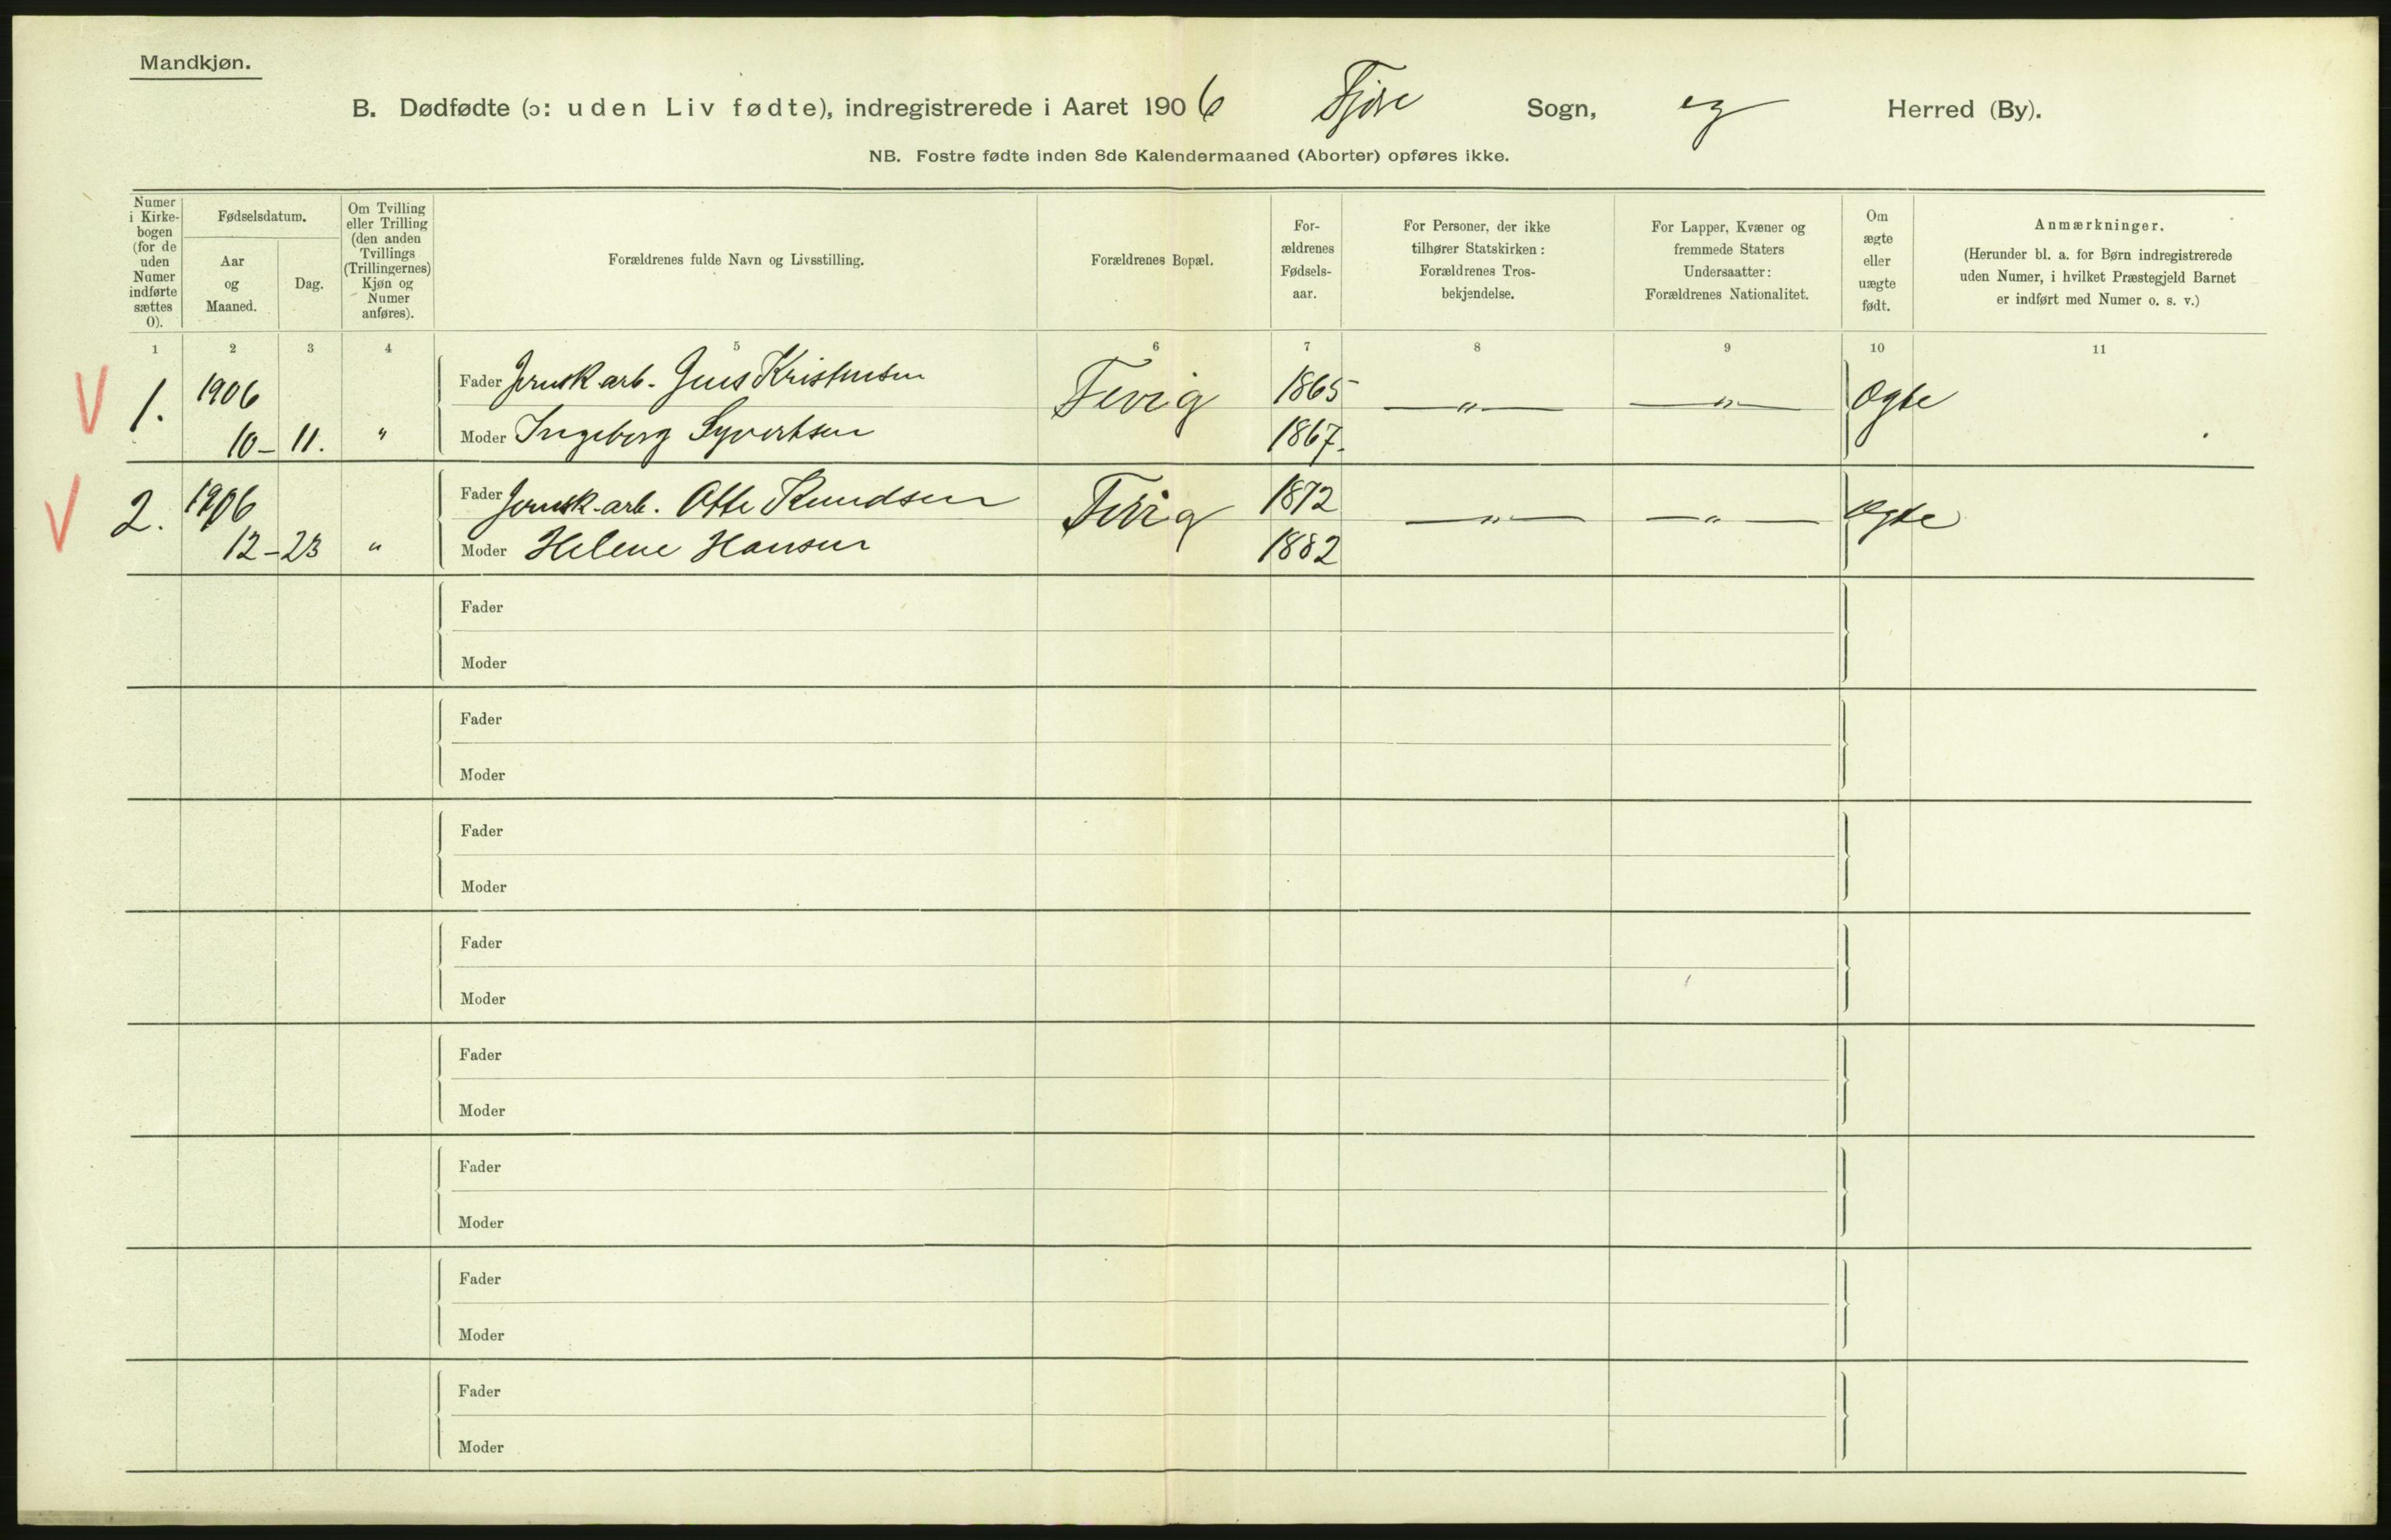 Mandkjøn.
B. Dødfødte (ɔ: uden Liv fødte), indregistrerede i Aaret 1906 Fjære Sogn, og Herred (By).
NB. Fostre fødte inden 8de Kalendermaaned (Aborter) opføres ikke.
Numer i Kirkebogen (for de uden Numer indførte sættes 0).
Fødselsdatum.
Aar og Maaned.
Dag.
Om Tvilling eller Trilling (den anden Tvillings (Trillingernes) Kjøn og Numer anføres).
Forældrenes fulde Navn og Livsstilling.
Forældrenes Bopæl.
For-ældrenes Fødsels-aar.
For Personer, der ikke tilhører Statskirken: Forældrenes Tros-bekjendelse.
For Lapper, Kvæner og fremmede Staters Undersaatter: Forældrenes Nationalitet.
Om ægte eller uægte født.
Anmærkninger.
(Herunder bl. a. for Børn indregistrerede uden Numer, i hvilket Præstegjeld Barnet er indført med Numer o. s. v.)
1 2 3 4 5 6 7 8 9 10 11
V 1. 1906 Fader Jernsk.arb. Jens Kristensen Fevig 1865 —"— —"— Ægte
10-11. " Moder Ingeborg Syvertsen 1867.
V 2. 1906 Fader Jernsk.arb. Otto Knudsen Fevig 1872 —"— —"— Ægte
12-23 " Moder Helene Hansen 1882
Fader
Moder
Fader
Moder
Fader
Moder
Fader
Moder
Fader
Moder
Fader
Moder
Fader
Moder
Fader
Moder